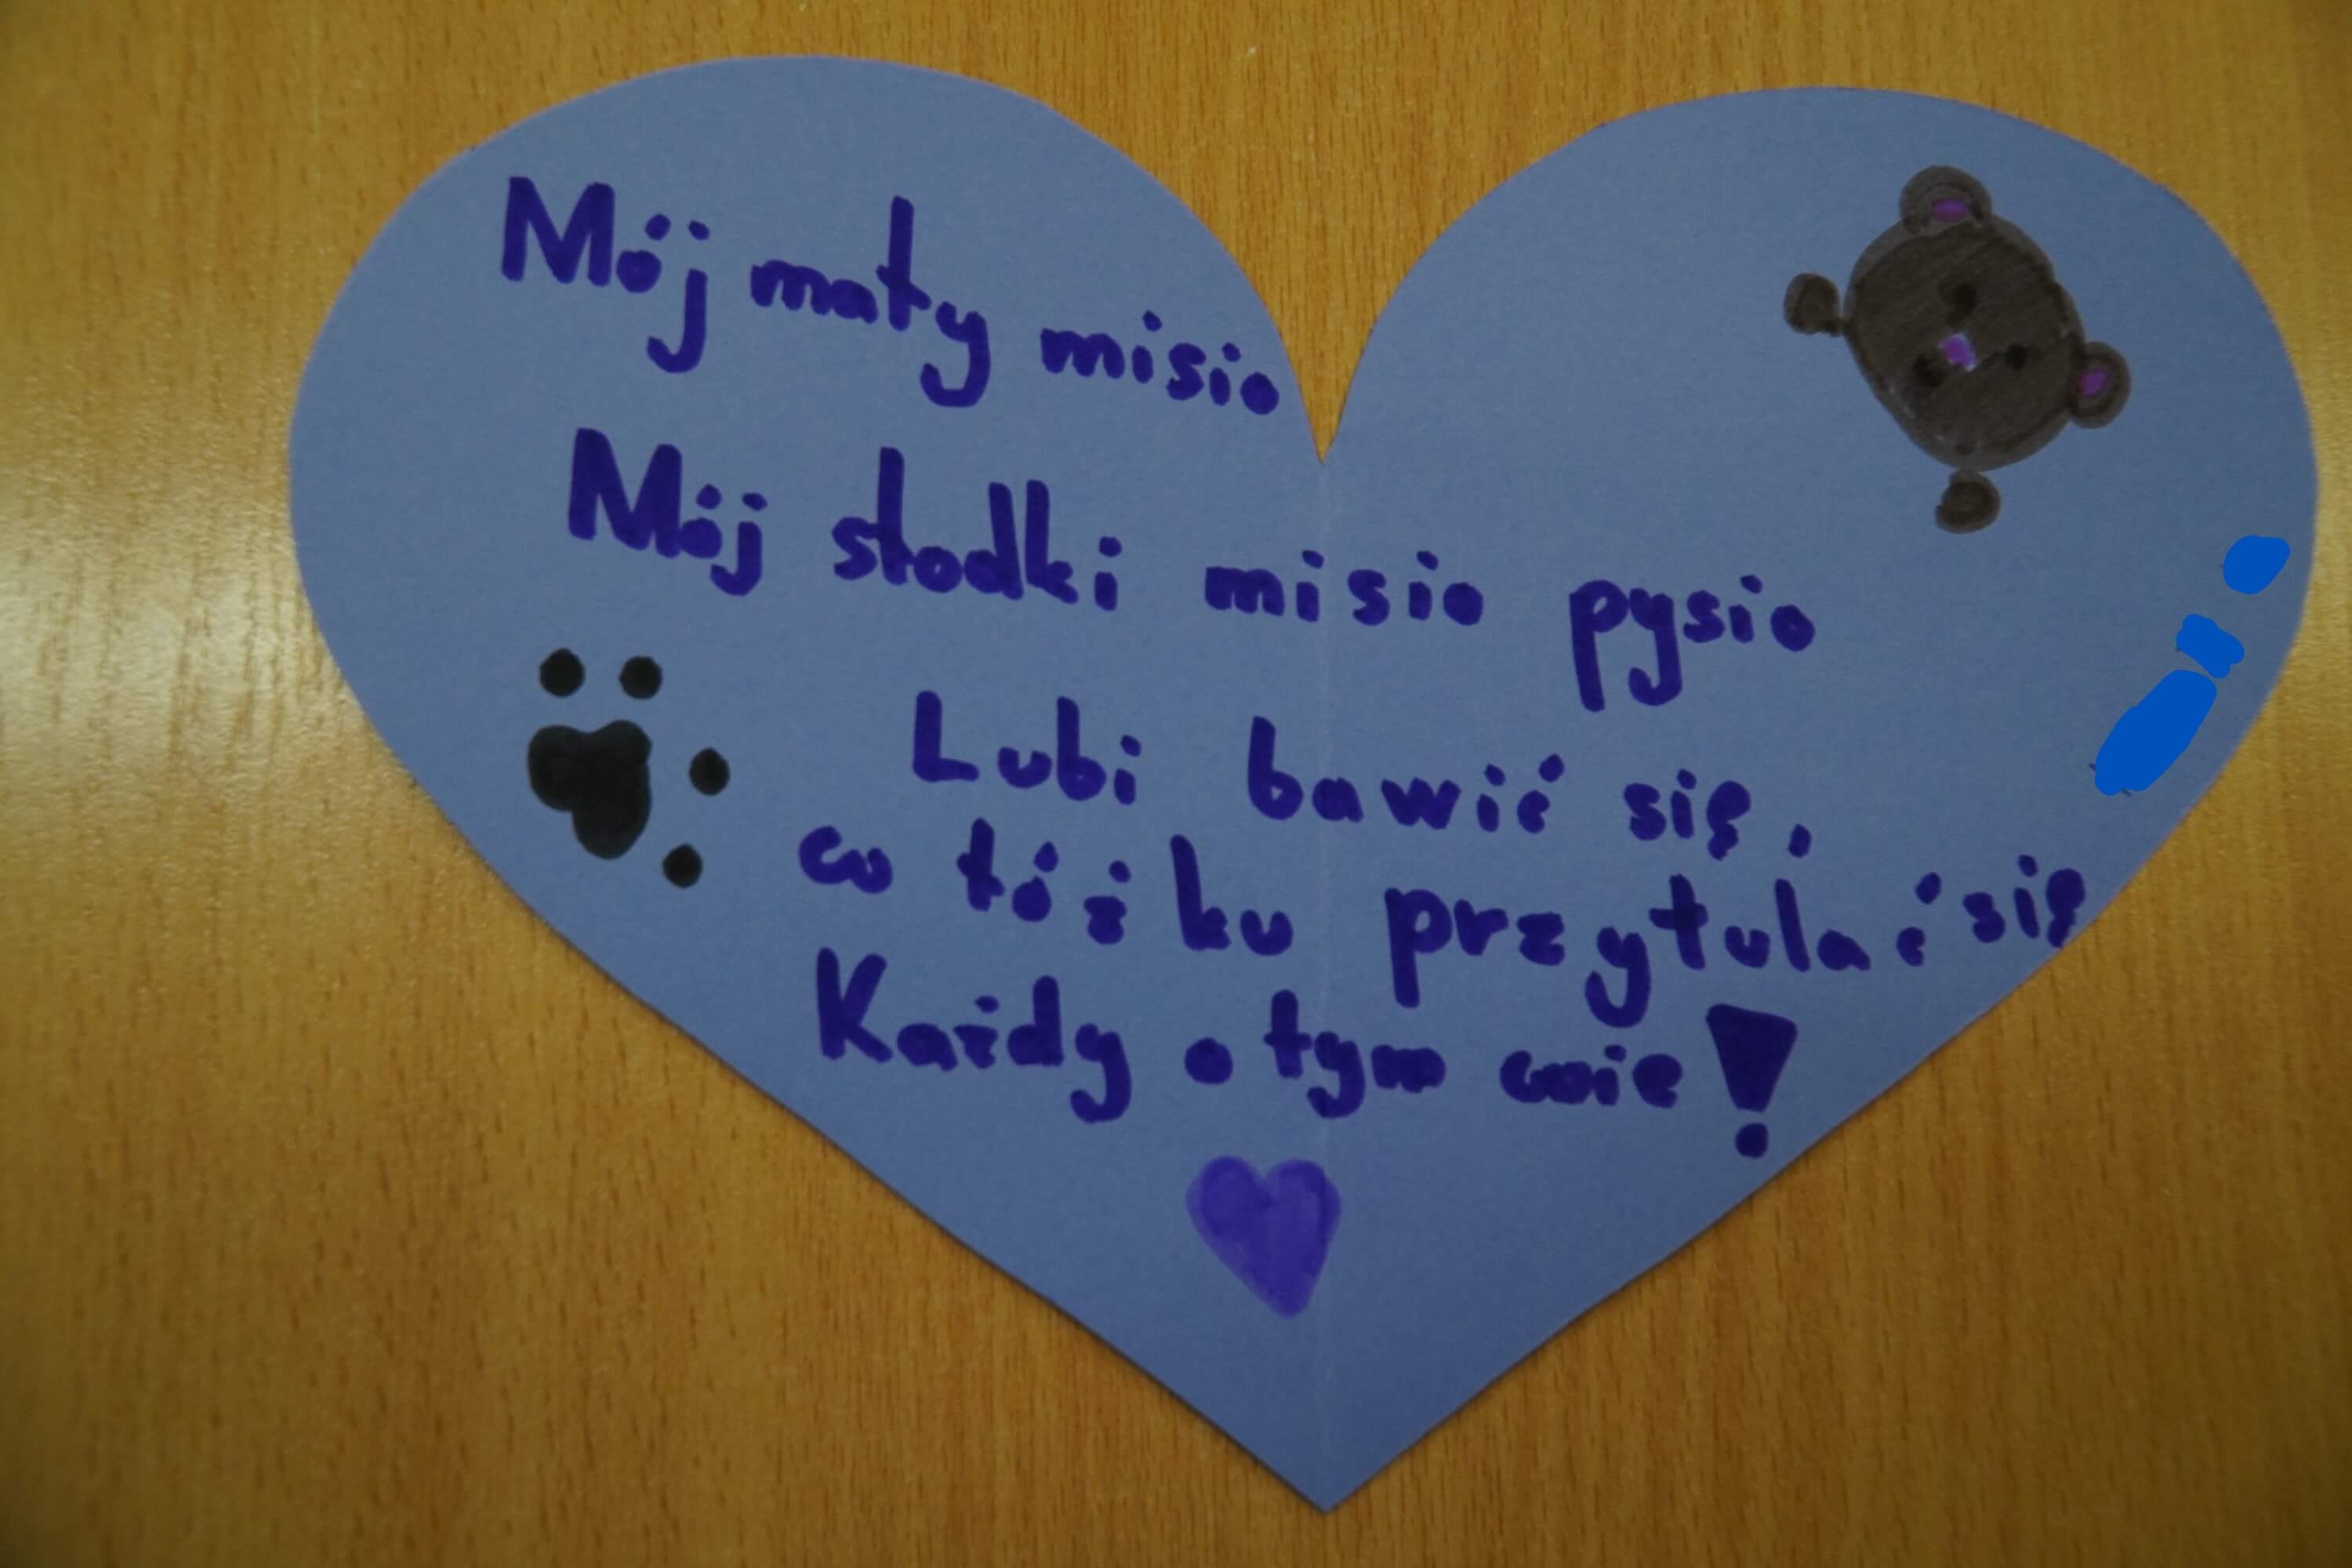 Mój mały misio
Mój słodki misio pysio
Lubi bawić się,
w łóżku przytulać się
Każdy o tym wie!